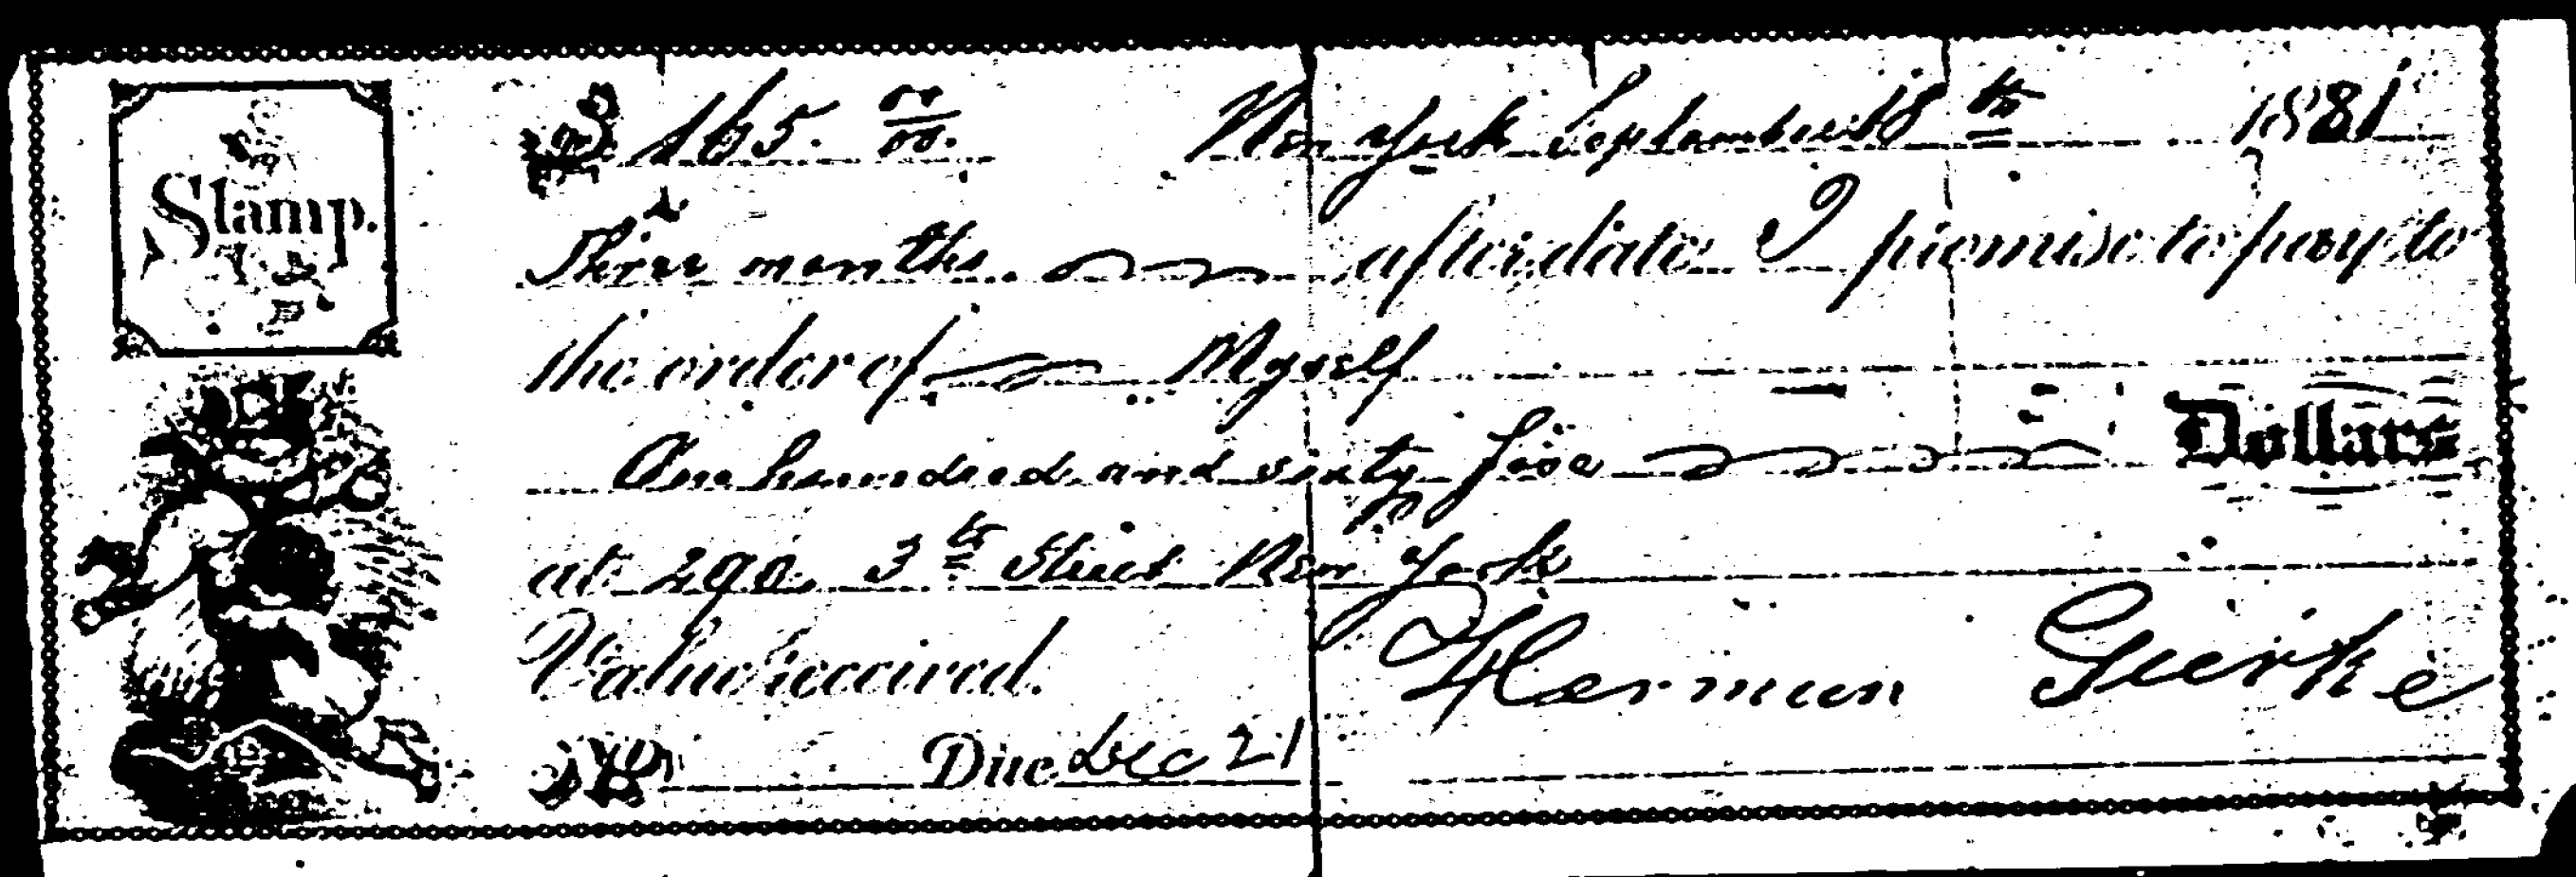 Stamp.
$ 165. 00/00. New York September 18th 1881
Three months after date I promise to pay to
the order of Myself
One hundred and sixty five Dollars
at 290. 3th Street New York
Value Received. Herman Gierke
No Due Dec 21